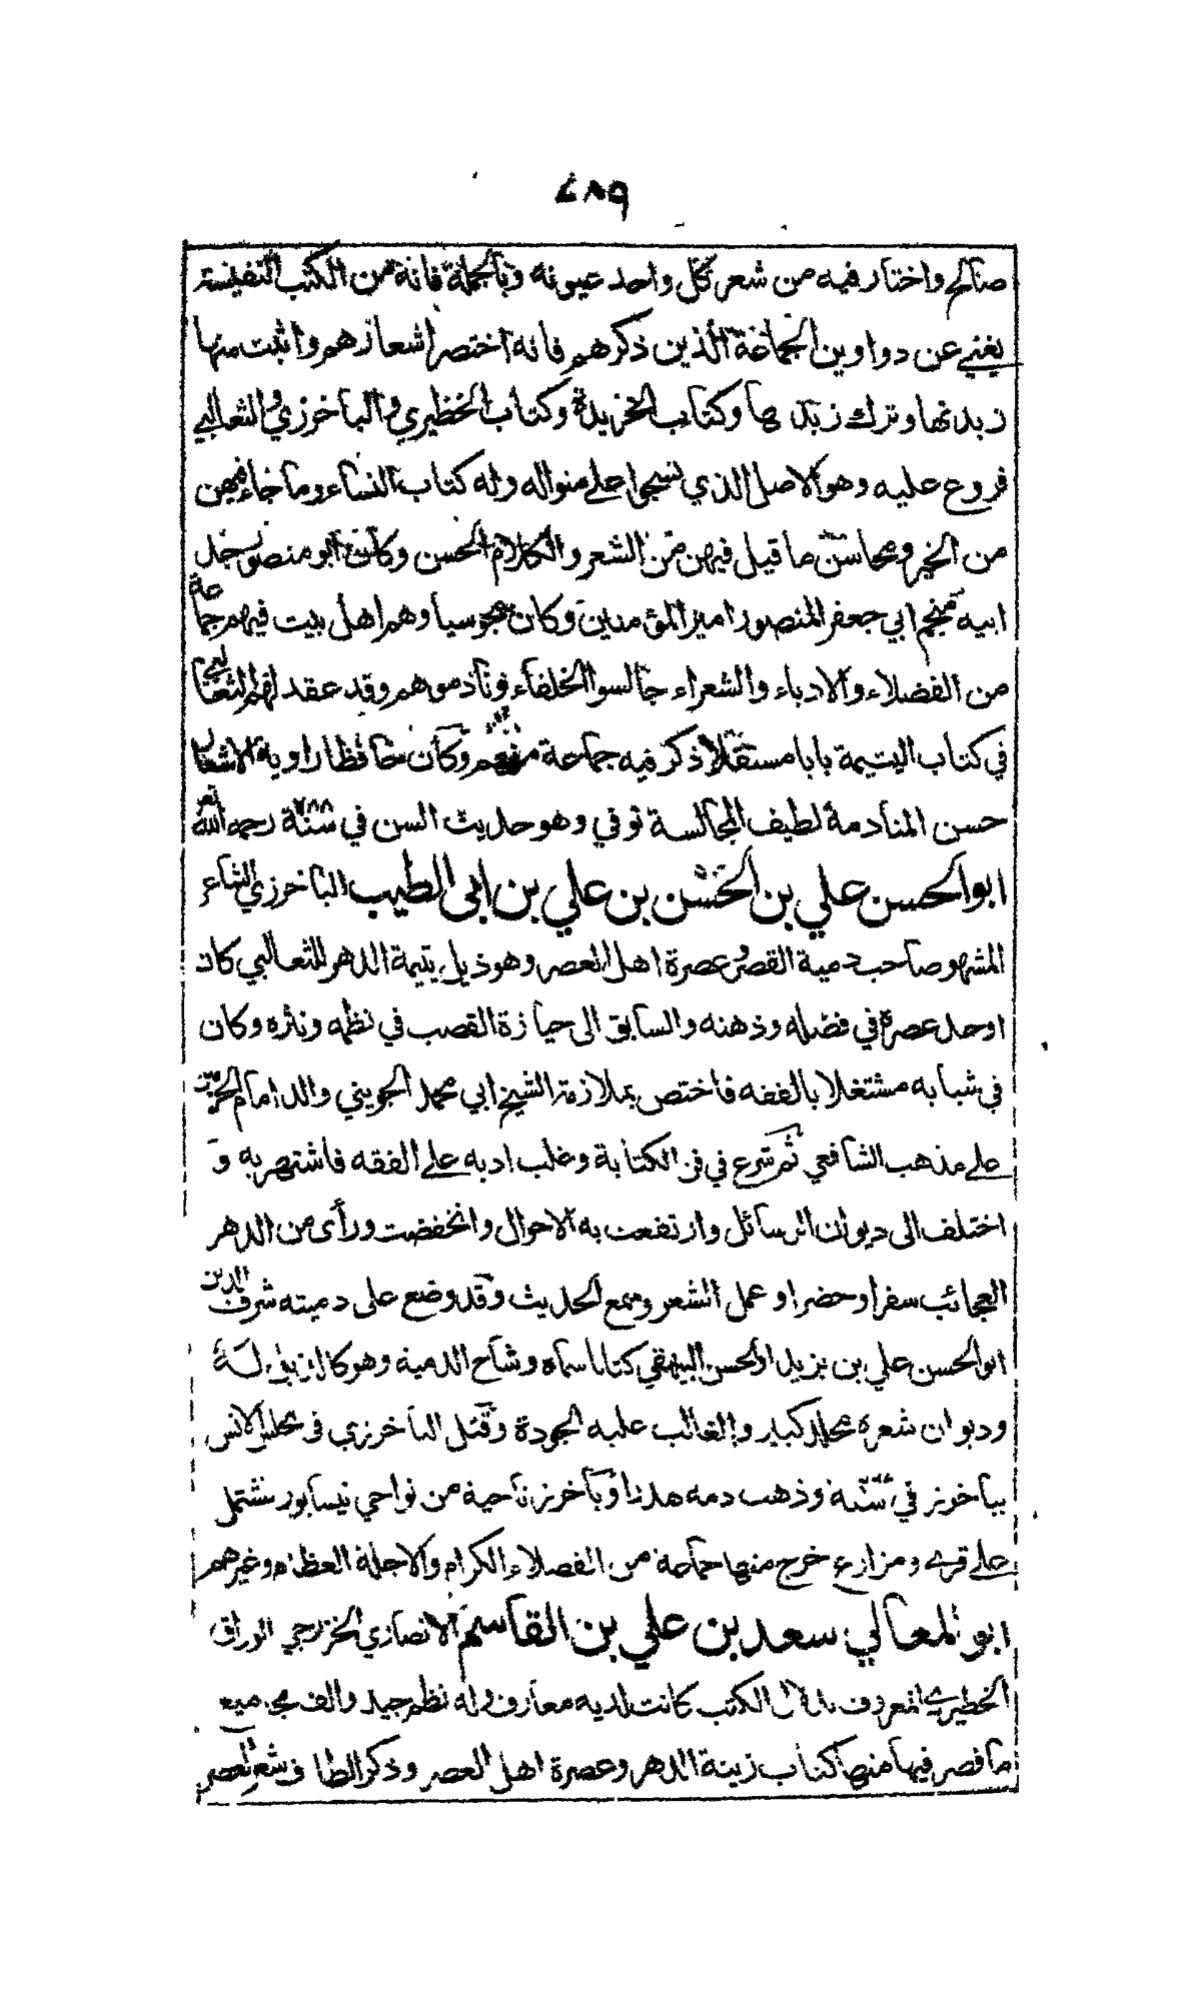 ٤٨٩
صالح واختار فيه من شعر كل واحد عيونه وبالجملة فانه من الكتب النفيسة
يغني عن دواوين الجماعة الذين ذكرهم فانه اختصر اشعارهم واثبت منها
زبدتها وترك زبدها وكتاب الخريدة وكتاب الخظيري والباخرزي والثعالبي
فروع عليه وهو الاصل الذي نسجوا على منواله وله كتاب النساء وما جاء فيهن
من الخير ومحاسن ما قيل فيهن من الشعر والكلام الحسن وكان ابو منصور جد
ابيه منجم ابي جعفر المنصور امير المؤمنين وكان مجوسيا وهم اهل بيت فيهم جماعة
من الفضلاء والادباء والشعراء جالسوا الخلفاء ونادموهم وقد عقد لهم الثعالبي
في كتاب اليتيمة بابا مستقلا ذكر فيه جماعة منهم وكان حافظا راوية الاشعار
حسن المنادمة لطيف المجالسة توفي وهو حديث السن في سنة ٢٨٨ رحمه الله
ابو الحسن علي بن الحسن بن علي بن ابى الطيب الباخرزي الشاعر
المشهو صاحب دمية القصر وعصرة اهل العصر وهو ذيل يتيمة الدهر للثعالبي كان
اوحد عصره في فضله وذهنه والسابق الى حيازة القصب في نظمه ونثره وكان
في شبابه مشتغلا بالفقه فاختص بملازمة الشيخ ابي محمد الجويني والد امام الحرمين
على مذهب الشافعي ثم شرع في فن الكتابة وغلب ادبه على الفقه فاشتهر به و
اختلف الى ديوان الرسائل وارتفعت به الاحوال وانخفضت ورأى من الدهر
العجائب سفرا وحضرا وعمل الشعر وسمع الحديث وقد وضع على دميته شرف الدين
ابو الحسن علي بن يزيد ابو الحسن البيهقي كتابا سماه وشاح الدمية وهو كالذيل له
وديوان شعره مجلد كبير والغالب عليه الجودة وقتل الباخرزي في مجلس الانس
بباخرز في سنة وذهب دمه هدرا وباخرز ناحية من نواحي نيسابور تشتمل
على قرى ومزارع خرج منها جماعة من الفضلاء الكرام والاجلة العظام وغيرهم
ابو المعالي سعد بن علي بن القاسم الانصاري الخزرجي الوراق
الخظيري المعروف بدلال الكتب كانت لديه معارف وله نظم جيد والف مجاميع
ما قصر فيها منها كتاب زينة الدهر وعصرة اهل العصر وذكر الطاف شعر العصر